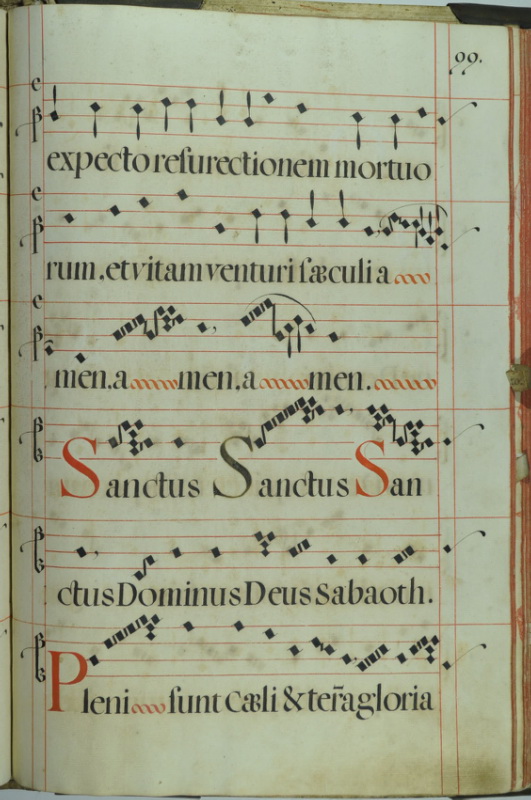 99.
expecto reſurectionem mortuo
rum. et vitam venturi ſæculi a
men. a men. a men.
Sanctus Sanctus San
ctus Dominus Deus Sabaoth.
Pleni ſunt Cæli & ter̃a gloria